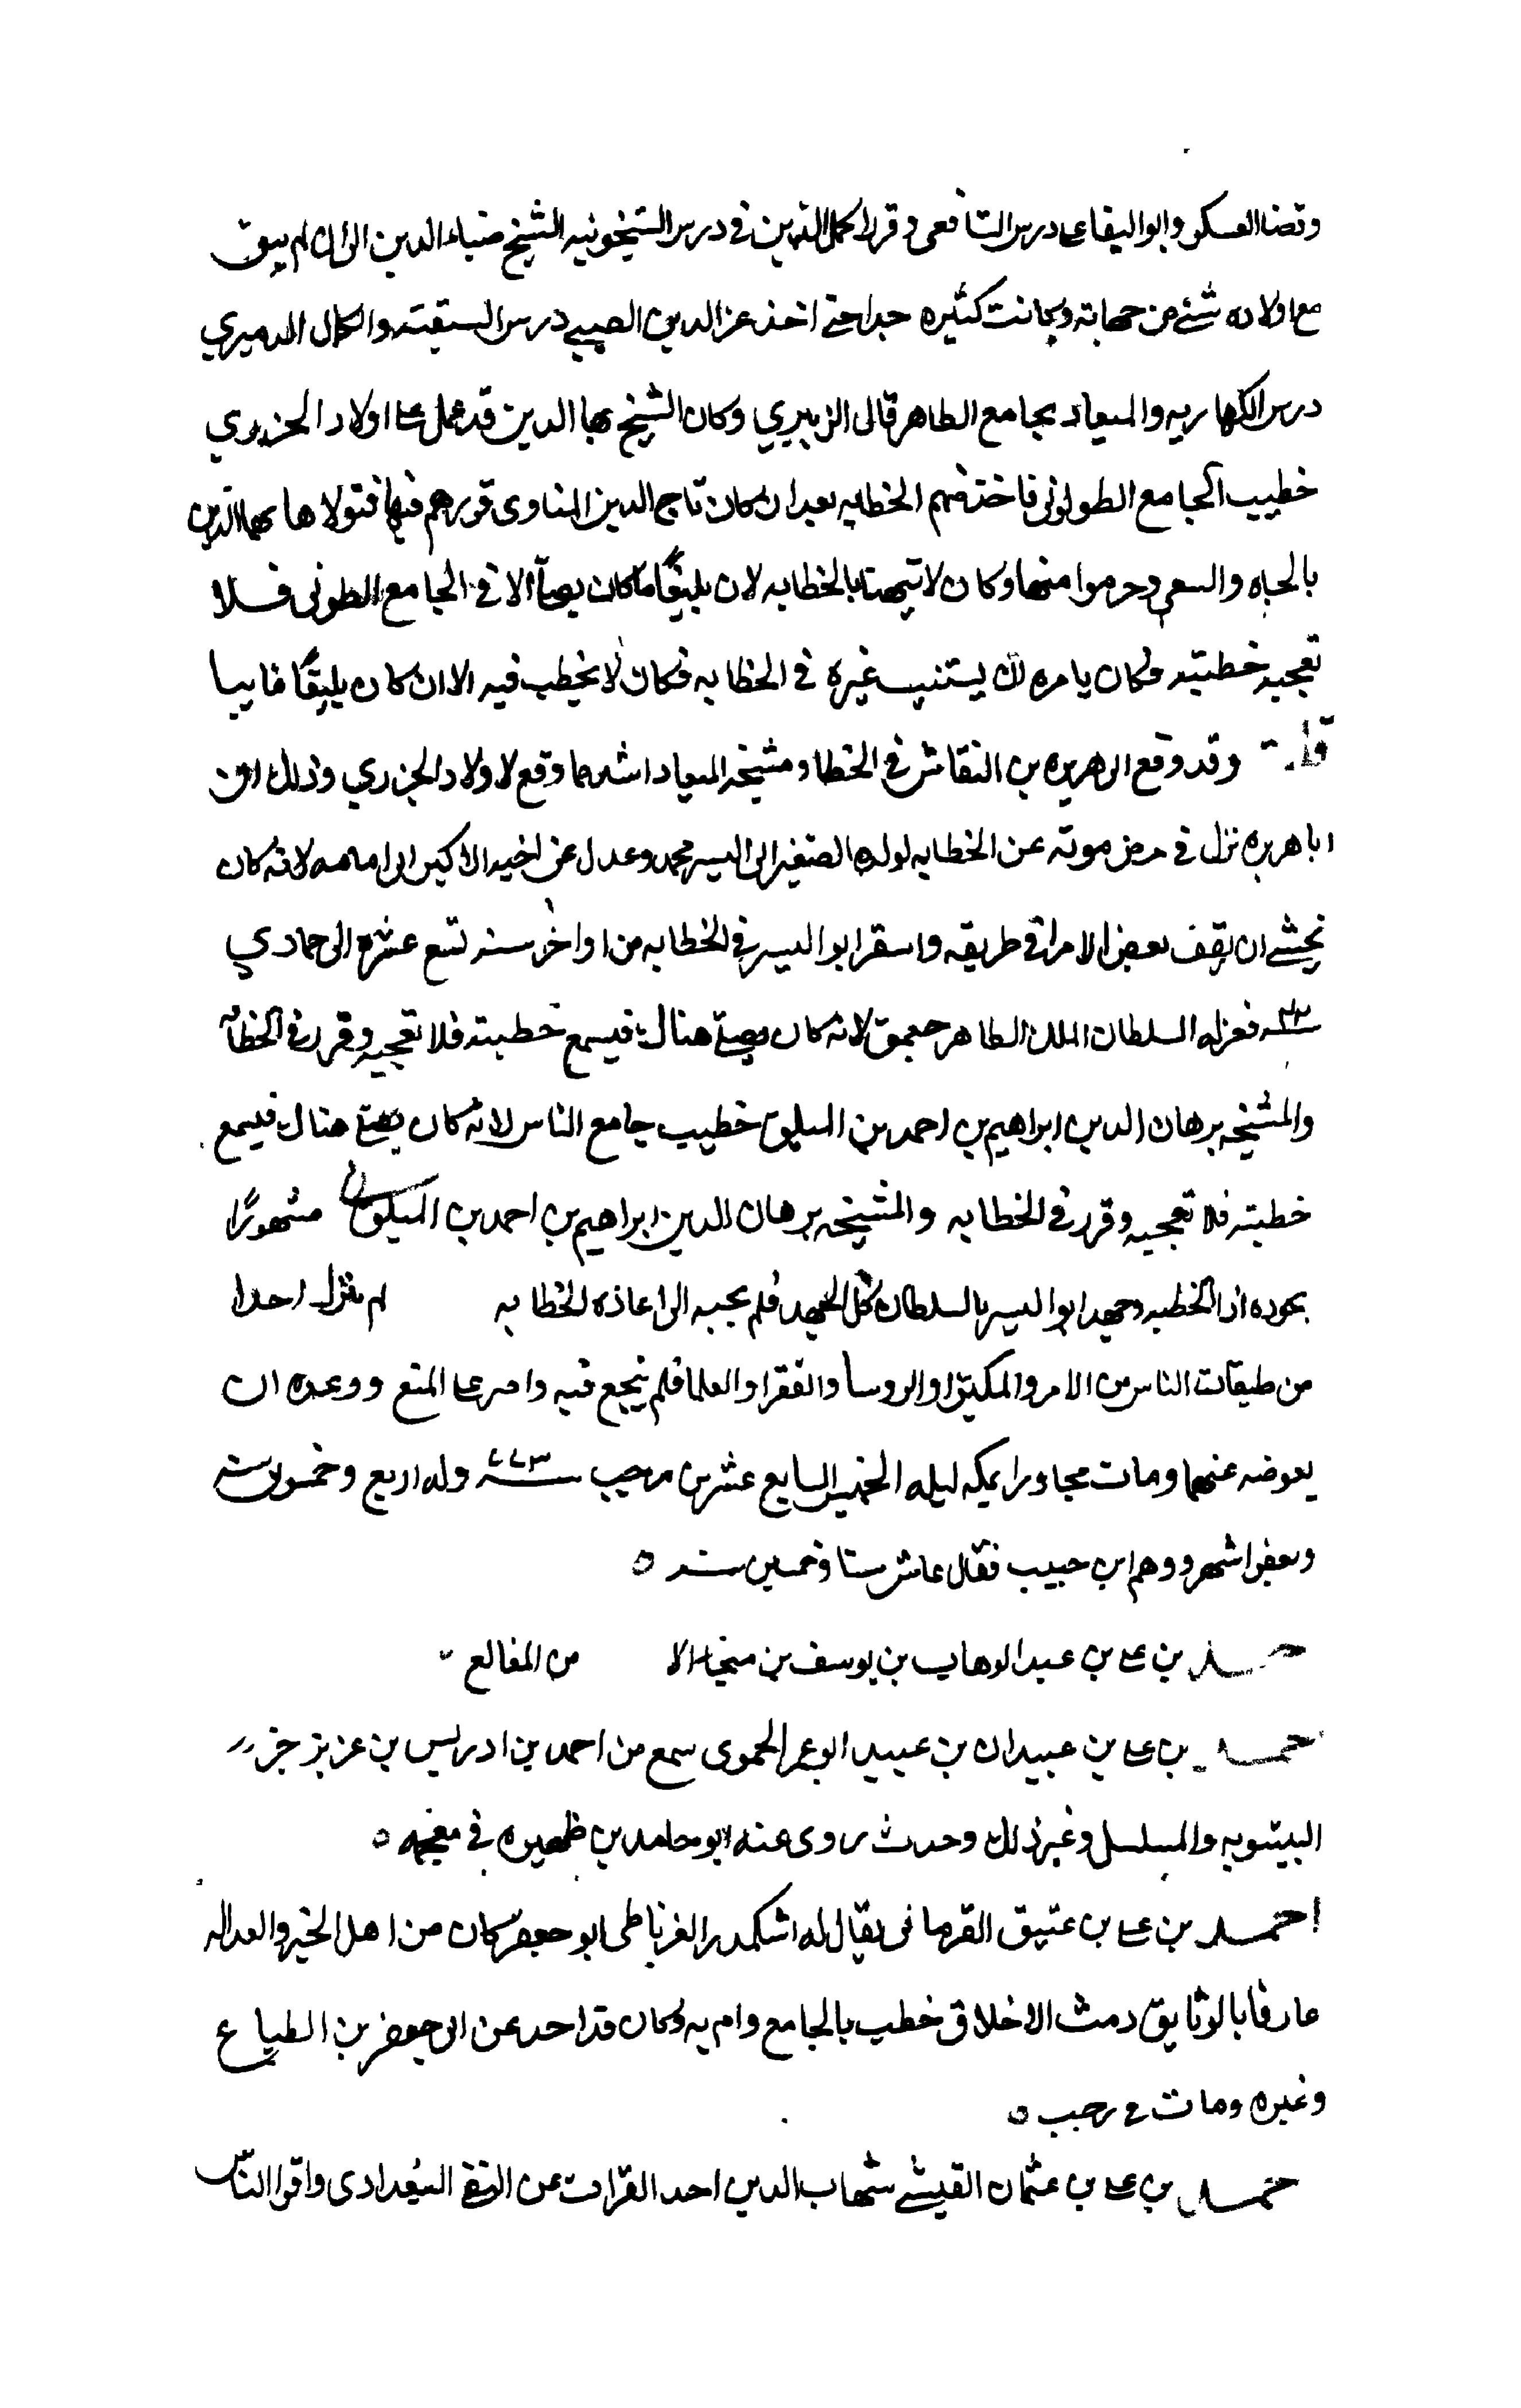 وقضا العسكر وابوالبقاء على درس الشافعي وقرر اكمل الدين في درس الشيخونيه الشيخ ضياء الدين الى ان لم يبق
مع اولاده شيء من جهاته وكانت كثيره جدا حتى اخذ عز الدين الصيبي درس السيفيه والكمال الدميري
درس الكهاريه والميعاد بجامع الظاهر قال الزبيري وكان الشيخ بها الدين قد عمل على اولاد الجزري
خطيب الجامع الطولوني فاخذ منهم الخطابه بعد ان كان تاج الدين المناوى قررهم فيها فتولاها بها الدين
بالجاه والسعي وحرموا منها وكان لا يتهنا بالخطابه لان يلبغا ما كان يصلي الا في الجامع الطونى فلا
تعجبه خطبته وكان يامره ان يستنيب غيره في الخطابه فكان لا يخطب فيه الا ان كان يلبغا غايبا
قلت وقد وقع لابى هريره بن النقاش في الخطا ومشيخه الميعاد اشد مما وقع لاولاد الجزري وذلك ان
اباهريره نزل في مرض موته عن الخطابه لولده الصغير ابى اليسر محمد وعدل عن اخيه الاكبر ابى امامه لانه كان
يخشى ان يقف بعض الامرا في طريقه واستقر ابو اليسر في الخطابه من اواخر سنه تسع عشره الى جمادي
فعزله السلطان الملك الظاهر جقمق لانه كان يصلي هناك فيسمع خطبته فلا تعجبه وقرر في الخطابه
والمشيخه برهان الدين ابراهيم بن احمد بن الميلق خطيب جامع الناس لانه كان يصلي هناك فيسمع
خطبته فلا تعجبه وقرر في الخطابه والمشيخه برهان الدين ابراهيم بن احمد بن الميلق مشهورًا
بجوده ادا الخطبه وجهد ابو اليسر بالسلطان كل الجهد فلم يجبه الى اعاده الخطابه لم يترك احدا
من طبقات الناس من الامر والمكيين والروسا والفقرا والعلما فلم ينجع فيه واصر على المنع ووعده ان
يعوضه عنهما ومات مجاورا بمكه ليله الخميس السابع عشر من رجب سنه ٧٧٣ وله اربع وخمسون سنه
وبعض اشهر ووهم ابن حبيب فقال عاش ستا وخمسين سنه ٥
حمد بن على بن عبد الوهاب بن يوسف بن منجا الا من المغالع
حمد بن على بن عبيدان بن عبيد ابو عمر الحموى سمع من احمد بن ادريس بن عزيز جزء
البيتوبه والمسلسل وغير ذلك وحدث روى عنه ابو حامد بن ظهيره في معجمه ٥
احمد بن على بن عتيق القرمانى يقال له اشكمدر الغرناطى ابو جعفر كان من اهل الخير والعداله
عارفا بالوثايق دمث الاخلاق خطب بالجامع وام به وكان قد اخذ عن ابى جعفر بن الطباع
وغيره ومات في رجب ٥
حمد بن على بن عثمان القيشي شهاب الدين اخذ القراات عن التقي البغدادى واقرا الناس